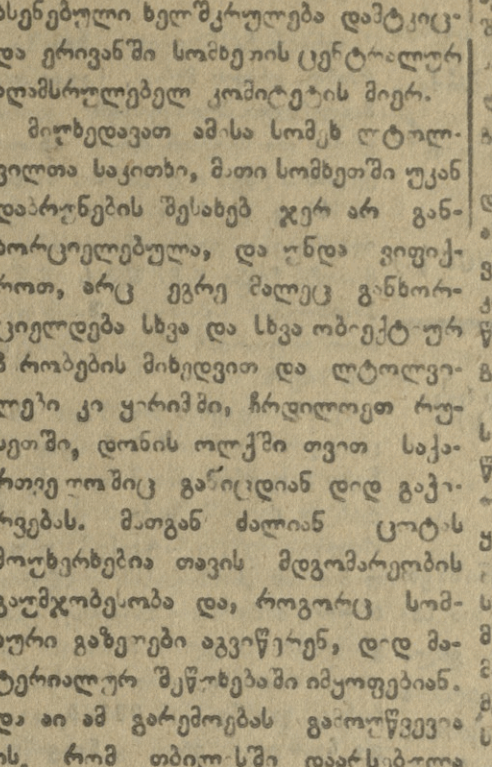 სენებული ხელშკრულება დამტკიც-
და ერივანში სომხეთის ცენტრალურ
აღამსრულებელ კომიტეტის მიერ.
მიუხედავათ ამისა სომეხ ლტოლ-
ვილთა საკითხი, მათი სომხეთში უკან
დაბრუნების შესახებ ჯერ არ გან-
ხორციელებულა, და უნდა ვიფიქ-
როთ, არც ეგრე მალეც განხორ-
ციელდება სხვა და სხვა ობიექტიურ
პირობების მიხედვით და ლტოლვი-
ლები კი ყირიმში, ჩრდილოეთ რუ-
სეთში, დონის ოლქში თვით საქა-
რთველოშიც განიცდიან დიდ გაჭი-
რვებას. მათგან ძალიან ცოტას
მოუხერხებია თავის მდგომარეობის
გაუმჯობესობა და, როგორც სომ-
ხური გაზეთები აგვიწერენ, დიდ მა-
ტერიალურ შეწუხებაში იმყოფებიან.
და აი ამ გარემოებას გამოუწვევია
ის, რომ თბილისში დაარსებულა